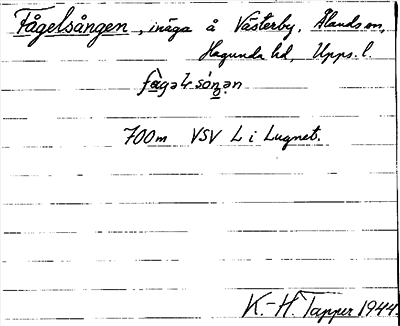 Fågelsången, inäga å Västerby, Ålands sn,
Hagunda hd, Upps. l.
fɑ̀gəl-sóŋən
700 m VSV L i Lugnet.
K.-H. Tapper 1944.